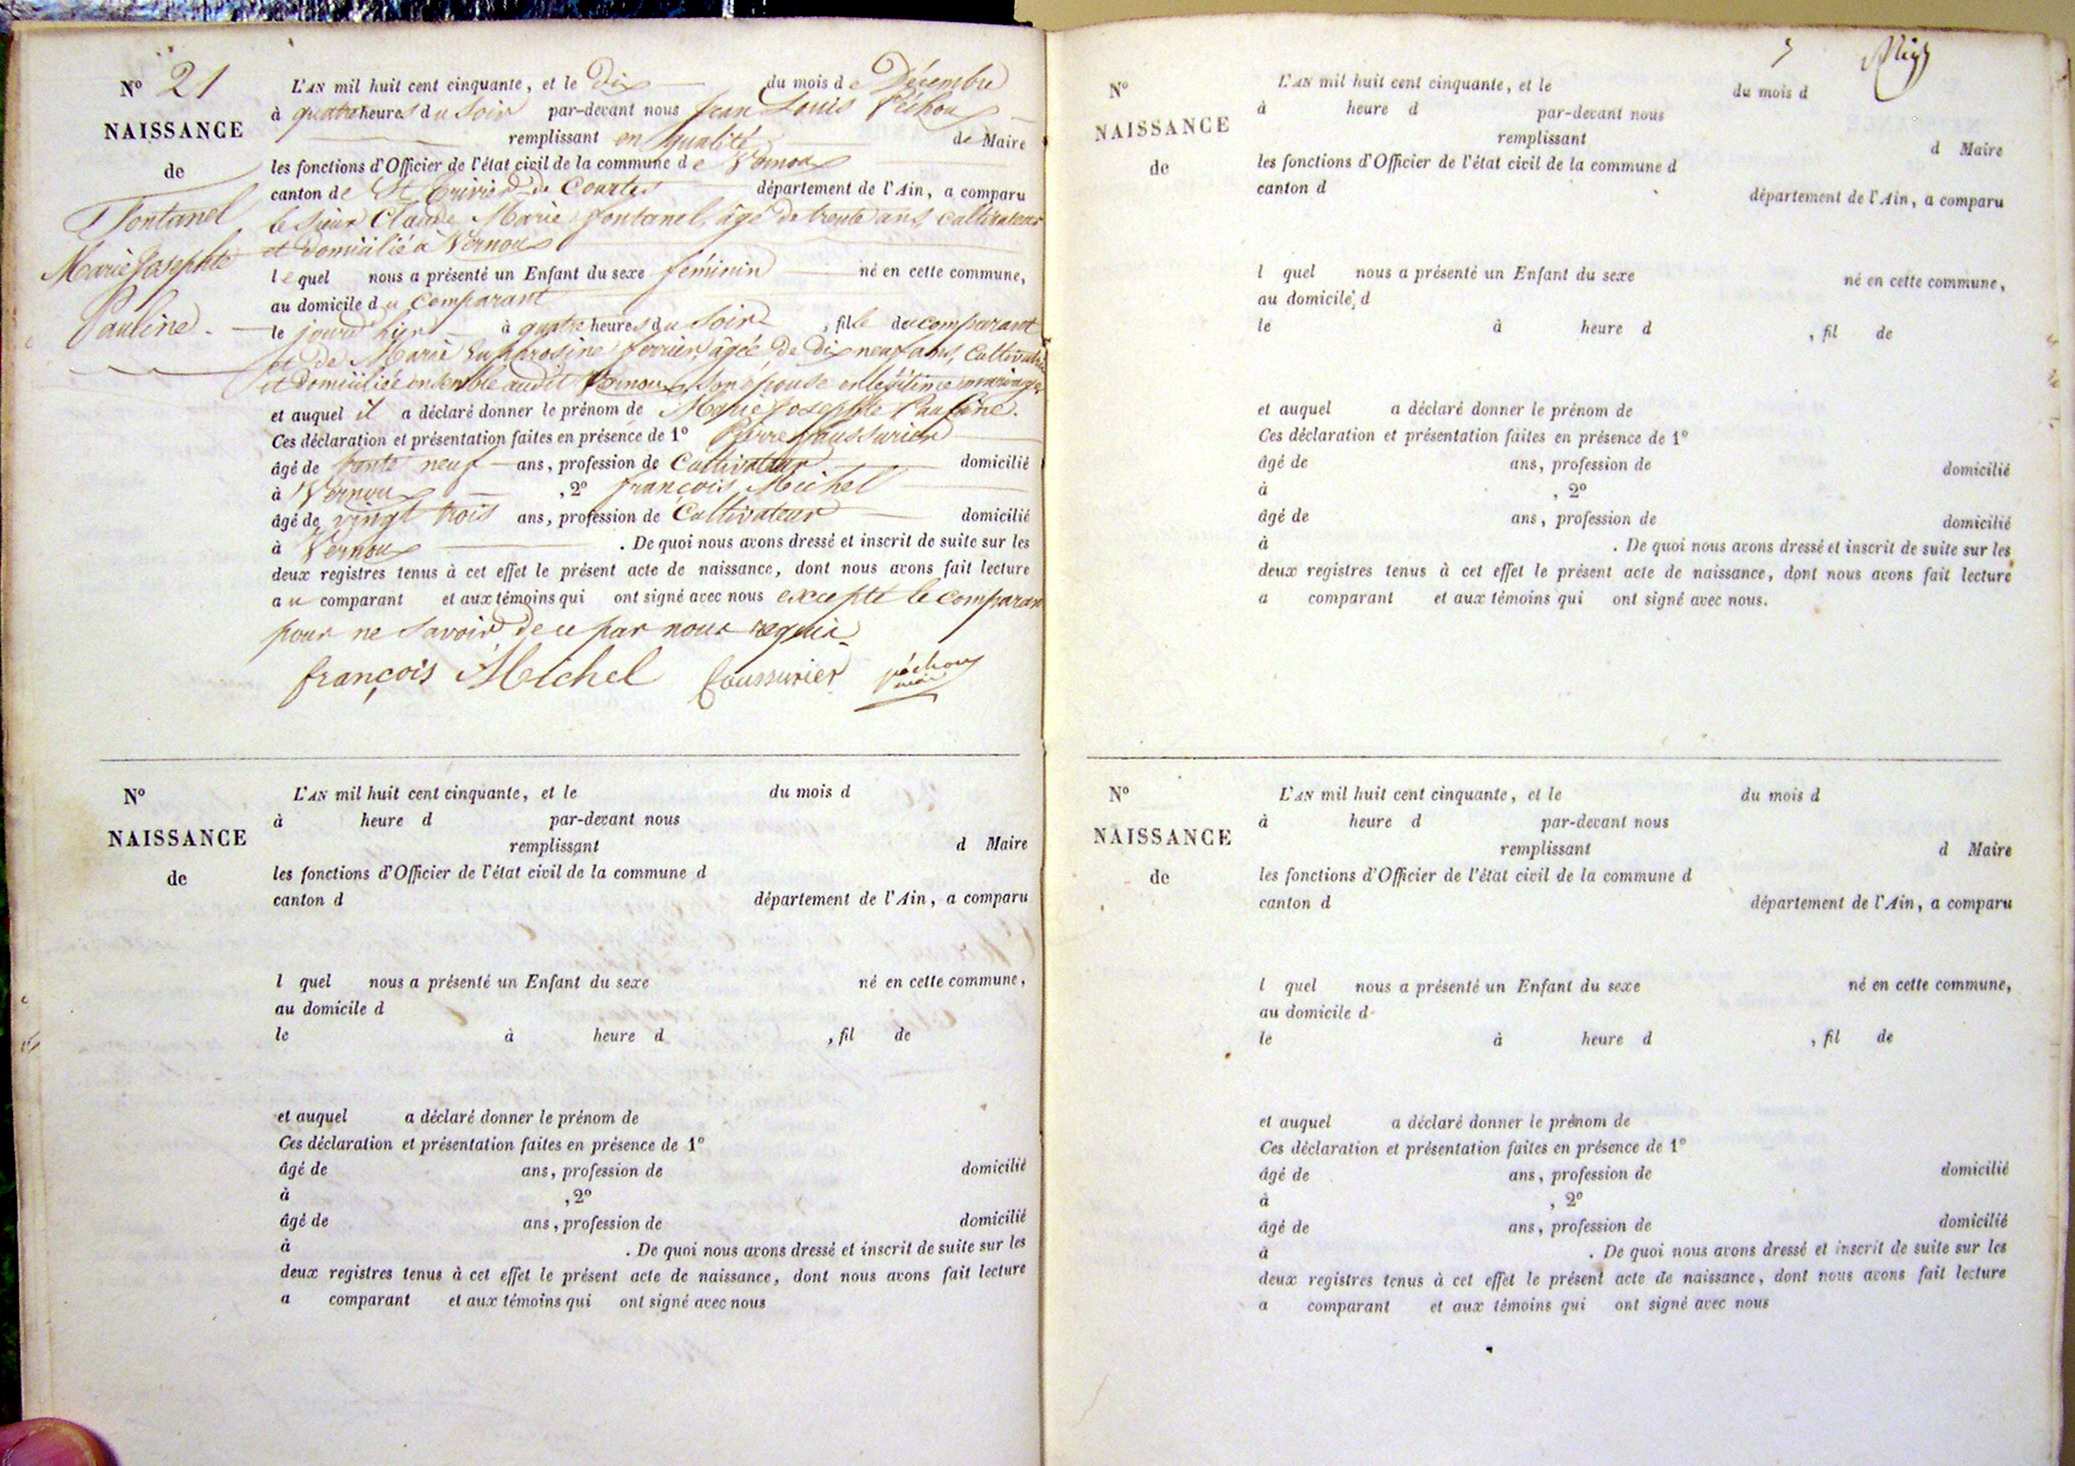 N° 21
NAISSANCE
de
Fontanel
Marie Josephte
Pauline.
L'AN mil huit cent cinquante, et le Dix du mois de Décembre
à quatre heures du Soir par-devant nous Jean Louis Péchoux
remplissant en qualité de Maire
les fonctions d'Officier de l'état civil de la commune de Vernoux
canton de St Trivier de Courtes département de l'Ain, a comparu
le sieur Claude Marie fontanel, âgé de trente ans, cultivateur
et domicilié à Vernoux
lequel nous a présenté un Enfant du sexe féminin né en cette commune,
au domicile du comparant
le jour d'hier à quatre heures du Soir, fille du comparant
et de Marie Euphrosine ferrier, âgée de dix neuf ans, Cultivatrice
et domiciliée ensemble audit Vernoux, son épouse en légitime mariage
et auquel il a déclaré donner le prénom de Marie Josephte Pauline.
Ces déclaration et présentation faites en présence de 1° Pierre
âgé de trente neuf ans, profession de Cultivateur domicilié
à Vernoux, 2° françois Michel
âgé de vingt trois ans, profession de Cultivateur domicilié
à Vernoux. De quoi nous avons dressé et inscrit de suite sur les
deux registres tenus à cet effet le présent acte de naissance, dont nous avons fait lecture
au comparant et aux témoins qui ont signé avec nous excepté le comparant
pour ne savoir de ce par nous requis
françois Michel péchoux
N°
NAISSANCE
de
L'AN mil huit cent cinquante, et le du mois d
à heure d par-devant nous
remplissant d Maire
les fonctions d'Officier de l'état civil de la commune d
canton d département de l'Ain, a comparu
l quel nous a présenté un Enfant du sexe né en cette commune,
au domicile d
le à heure d , fil de
et auquel a déclaré donner le prénom de
Ces déclaration et présentation faites en présence de 1°
âgé de ans, profession de domicilié
à , 2°
âgé de ans, profession de domicilié
à . De quoi nous avons dressé et inscrit de suite sur les
deux registres tenus à cet effet le présent acte de naissance, dont nous avons fait lecture
a comparant et aux témoins qui ont signé avec nous
N°
NAISSANCE
de
L'AN mil huit cent cinquante, et le du mois d
à heure d par-devant nous
remplissant d Maire
les fonctions d'Officier de l'état civil de la commune d
canton d département de l'Ain, a comparu
l quel nous a présenté un Enfant du sexe né en cette commune,
au domicile d
le à heure d , fil de
et auquel a déclaré donner le prénom de
Ces déclaration et présentation faites en présence de 1°
âgé de ans, profession de domicilié
à , 2°
âgé de ans, profession de domicilié
à . De quoi nous avons dressé et inscrit de suite sur les
deux registres tenus à cet effet le présent acte de naissance, dont nous avons fait lecture
a comparant et aux témoins qui ont signé avec nous.
N°
NAISSANCE
de
L'AN mil huit cent cinquante, et le du mois d
à heure d par-devant nous
remplissant d Maire
les fonctions d'Officier de l'état civil de la commune d
canton d département de l'Ain, a comparu
l quel nous a présenté un Enfant du sexe né en cette commune,
au domicile d
le à heure d , fil de
et auquel a déclaré donner le prénom de
Ces déclaration et présentation faites en présence de 1°
âgé de ans, profession de domicilié
à , 2°
âgé de ans, profession de domicilié
à . De quoi nous avons dressé et inscrit de suite sur les
deux registres tenus à cet effet le présent acte de naissance, dont nous avons fait lecture
a comparant et aux témoins qui ont signé avec nous